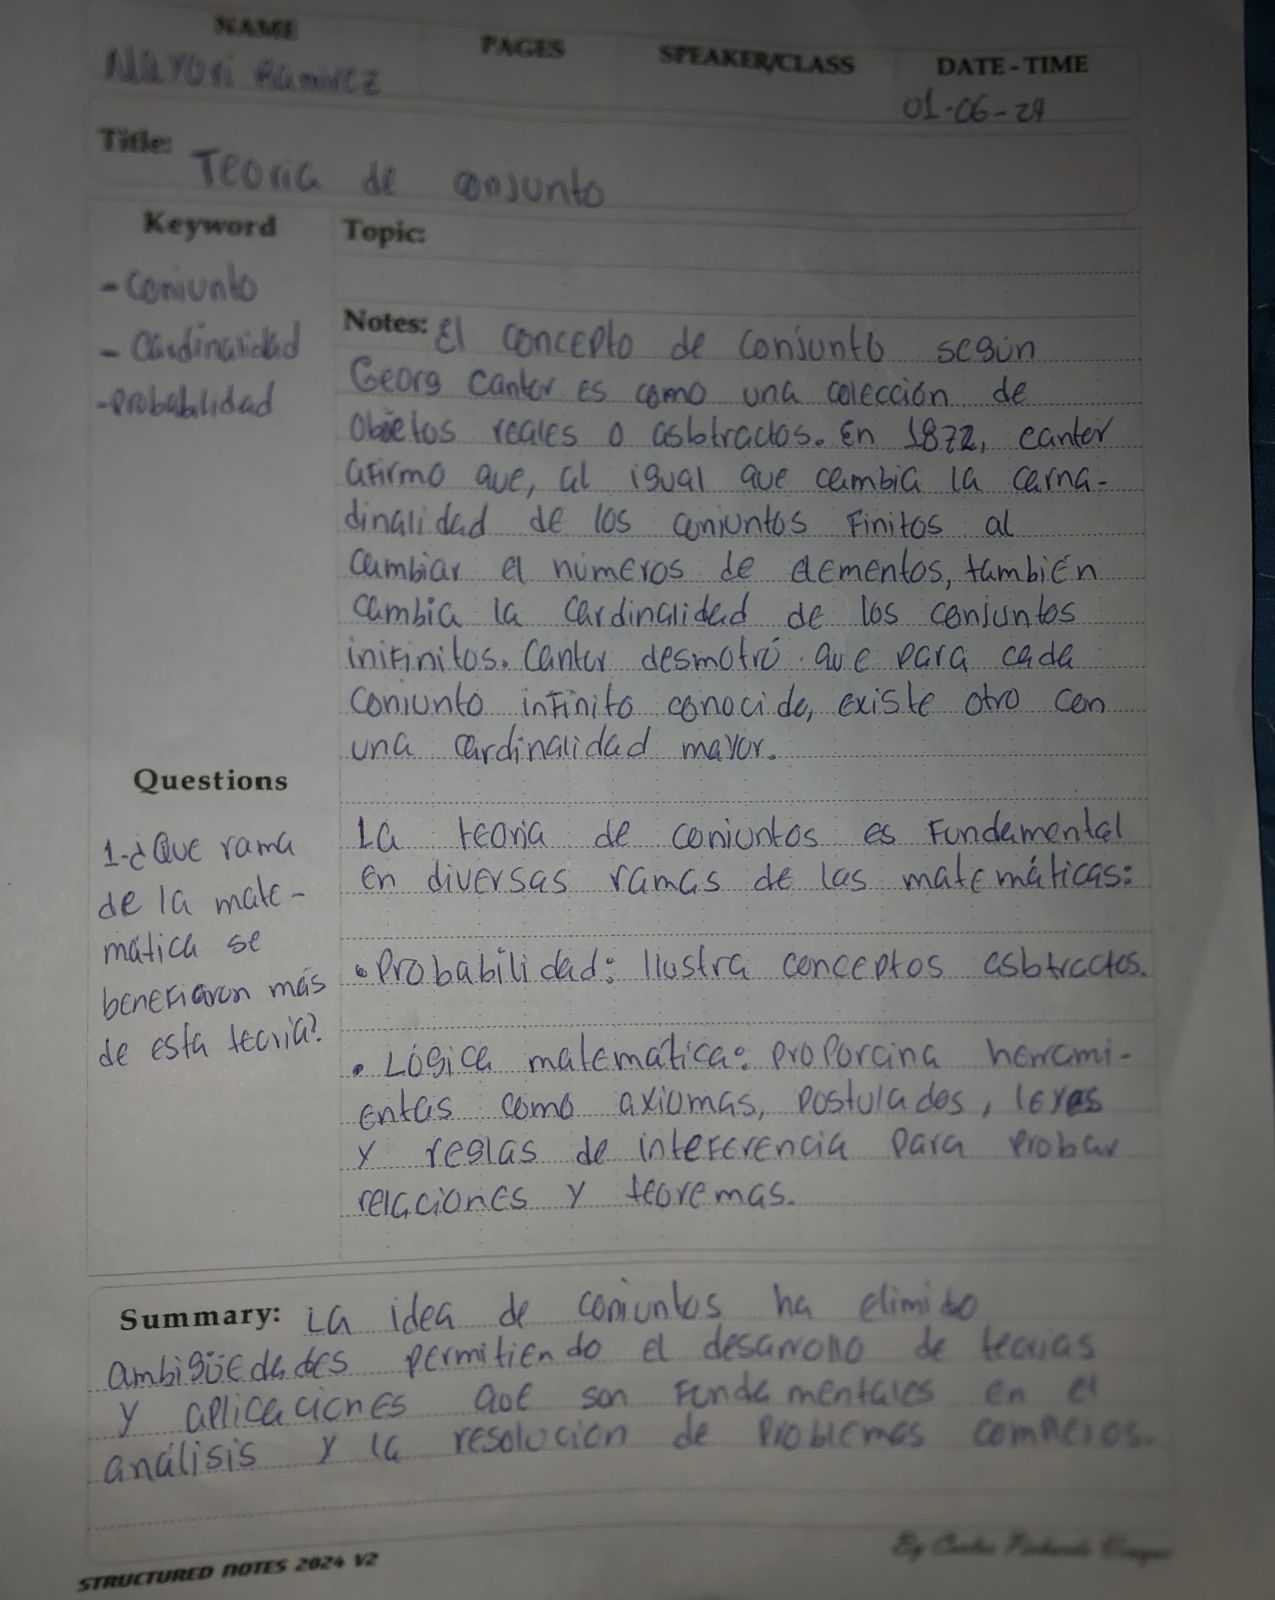 NAME
PAGES
SPEAKER/CLASS
DATE-TIME
Nayori Ramirez
01-06-24
Title: Teoria de conjunto
Keyword
- Conjunto
- Cardinalidad
- Probabilidad
Topic:
Notes: El concepto de conjunto según
Georg Cantor es como una colección de
objetos reales o asbtractos. En 1872, canter
afirmo que, al igual que cambia la carna-
dinalidad de los conjuntos finitos al
cambiar el números de elementos, también
cambia la cardinalidad de los conjuntos
inifinitos. Canter desmotró que para cada
conjunto infinito conocido, existe otro con
una cardinalidad mayor.
La teoria de conjuntos es Fundamental
en diversas ramas de las matemáticas:
• Probabilidad: Ilustra conceptos asbtractos.
• Lógica matemática: proporcina herrami-
entas como axiomas, postulados, leyes
y reglas de interferencia para probar
relaciones y teoremas.
Questions
1-¿Que rama
de la mate-
mática se
beneficiaron más
de esta teoria?
Summary: La idea de conjuntos ha elimido
ambigüedades permitiendo el desarrollo de teorias
y aplicaciones que son fundamentales en el
análisis y la resolución de problemas complejos.
STRUCTURED NOTES 2024 V2
By Carlos